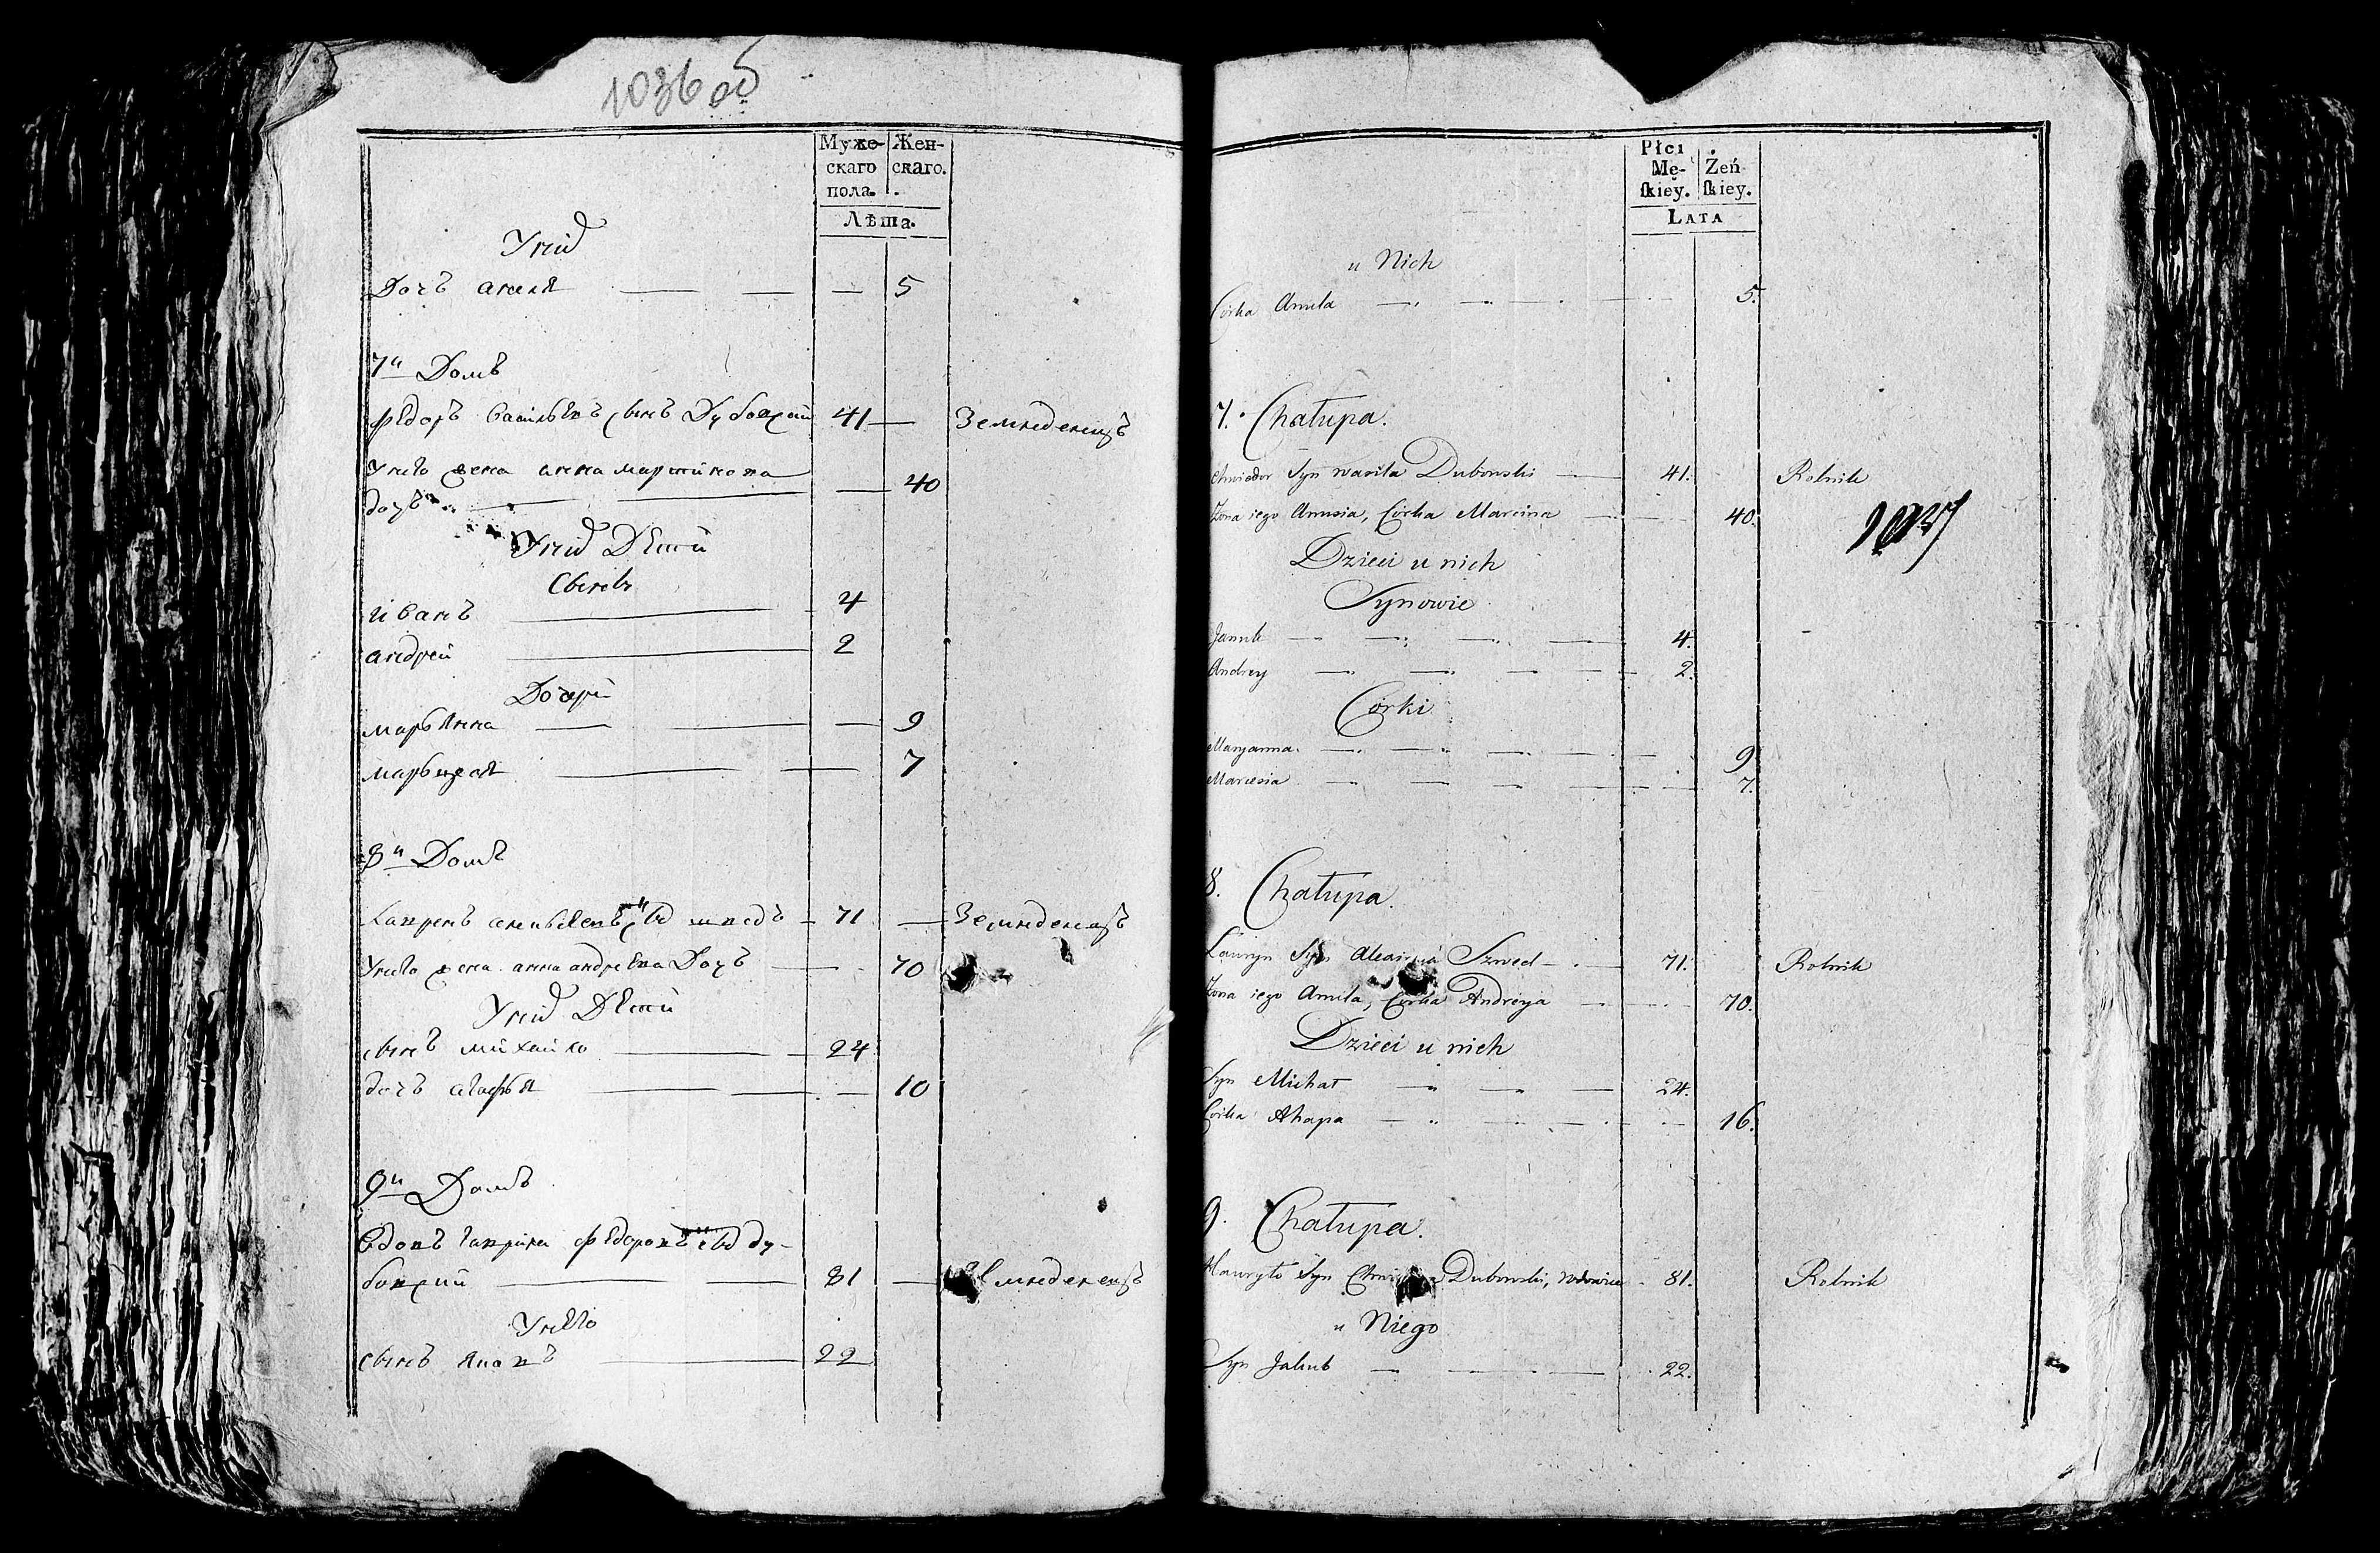 1036 об
Муже- Жен-
скаго скаго.
пола.
Лѣта.
Унiхъ
Дочь анеля — — — 5
7й Домъ
Федоръ васильевъ сынъ Дубовский 41 — Земледелецъ
Унего жена анна мартинова
дочь — — 40
Унихъ Дети
Сыны
иванъ — 4
андрей — 2
Дочери
марьянна — — — 9
марьцеля — — 7
8й Домъ
Лавренъ швед — 71 — Земледелецъ
Унего жена анна андреева Дочь — 70
Унихъ Дети
сынъ михайло — 24
дочь агафья — — 10
9й Домъ
вдовъ гаврила федоровъ ду-
бовский — 81 — Земледелецъ
Унего
сынъ яковъ — 22
Płci
Mę- Żeń-
ſkiey. ſkiey.
LATA
u Nich
Córka Anula — — — 5.
7. Chałupa.
Chwiedor Syn wasila Dubowski — 41. Rolnik
Żona iego Anusia, Córka Marcina — 40.
1037
Dzieci u nich
Synowie
Januk — — — 4.
Andrey — — — 2.
Córki
Maryanna — — — 9.
Marcesia — — — 7.
8. Chałupa.
Ławryn Syn Szwed — 71. Rolnik
Żona iego Anula, Córka Andreya — 70.
Dzieci u nich
Syn Michał — — — 24.
Córka Ahapa — — — 16.
9. Chałupa.
Hawryło Syn Dubowski, wdowiec 81. Rolnik
u Niego
Syn Jakub — — 22.